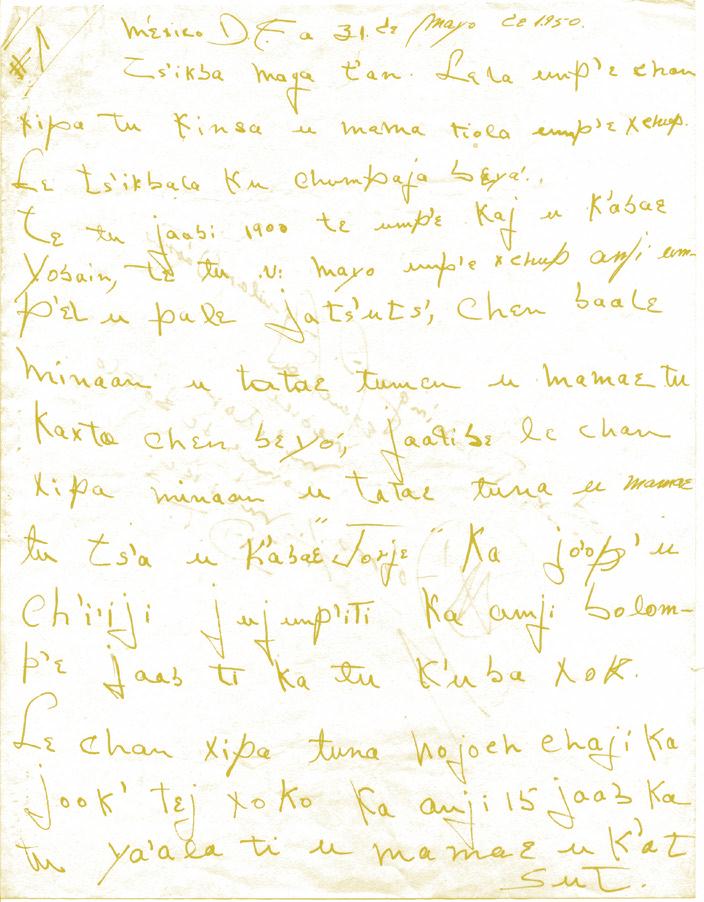 #1
México D.F. a 31. de Mayo de 1950.
Ts'ikba maya t'an. Lela ump'e chan
xipa tu Kinsa u mama tiola ump'e xchup.
Le ts'ikbala Ku chumpaja beya'..
te tu jaabi 1900 te ump'e Kaj u K'abae
Yobain, te tu u: mayo ump'e xchup anji um-
p'el u pale jats'uts', chen baale
minaan u tatae tumen u mamae tu
Kaxta chen beyo', jaatibe le chan
xipa minaan u tatae tuna u mamae
tu ts'a u K'abae "Jorje" Ka joop' u
ch'i'iji jujump'iti Ka anji bolom-
p'e jaab ti ka tu K'uba xok.
Le chan xipa tuna nojoch chaji Ka
jook' tej xoko Ka anji 15 jaab Ka
tu ya'ala ti u mamae u K'at
sut.